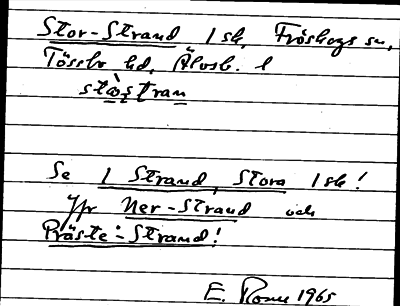 Stor-Strand 1 sk, Fröskogs sn,
Tössbo hd, Älvsb. l
Se 1 Strand, Stora 1 sk!
Jfr Ner-Strand och
Präste-Strand!
E. 1965